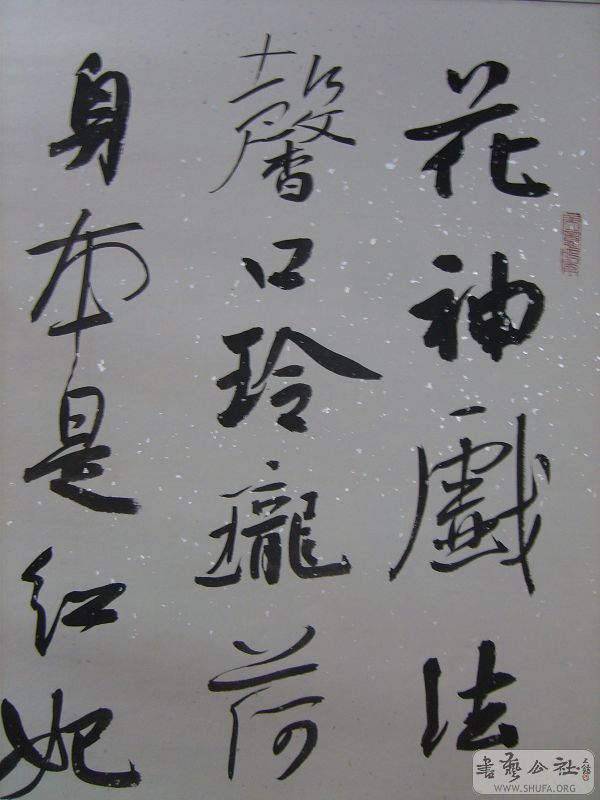 花神戲法
馨口玲瓏荷
身本是紅妃
書藝公社
WWW.SHUFA.ORG